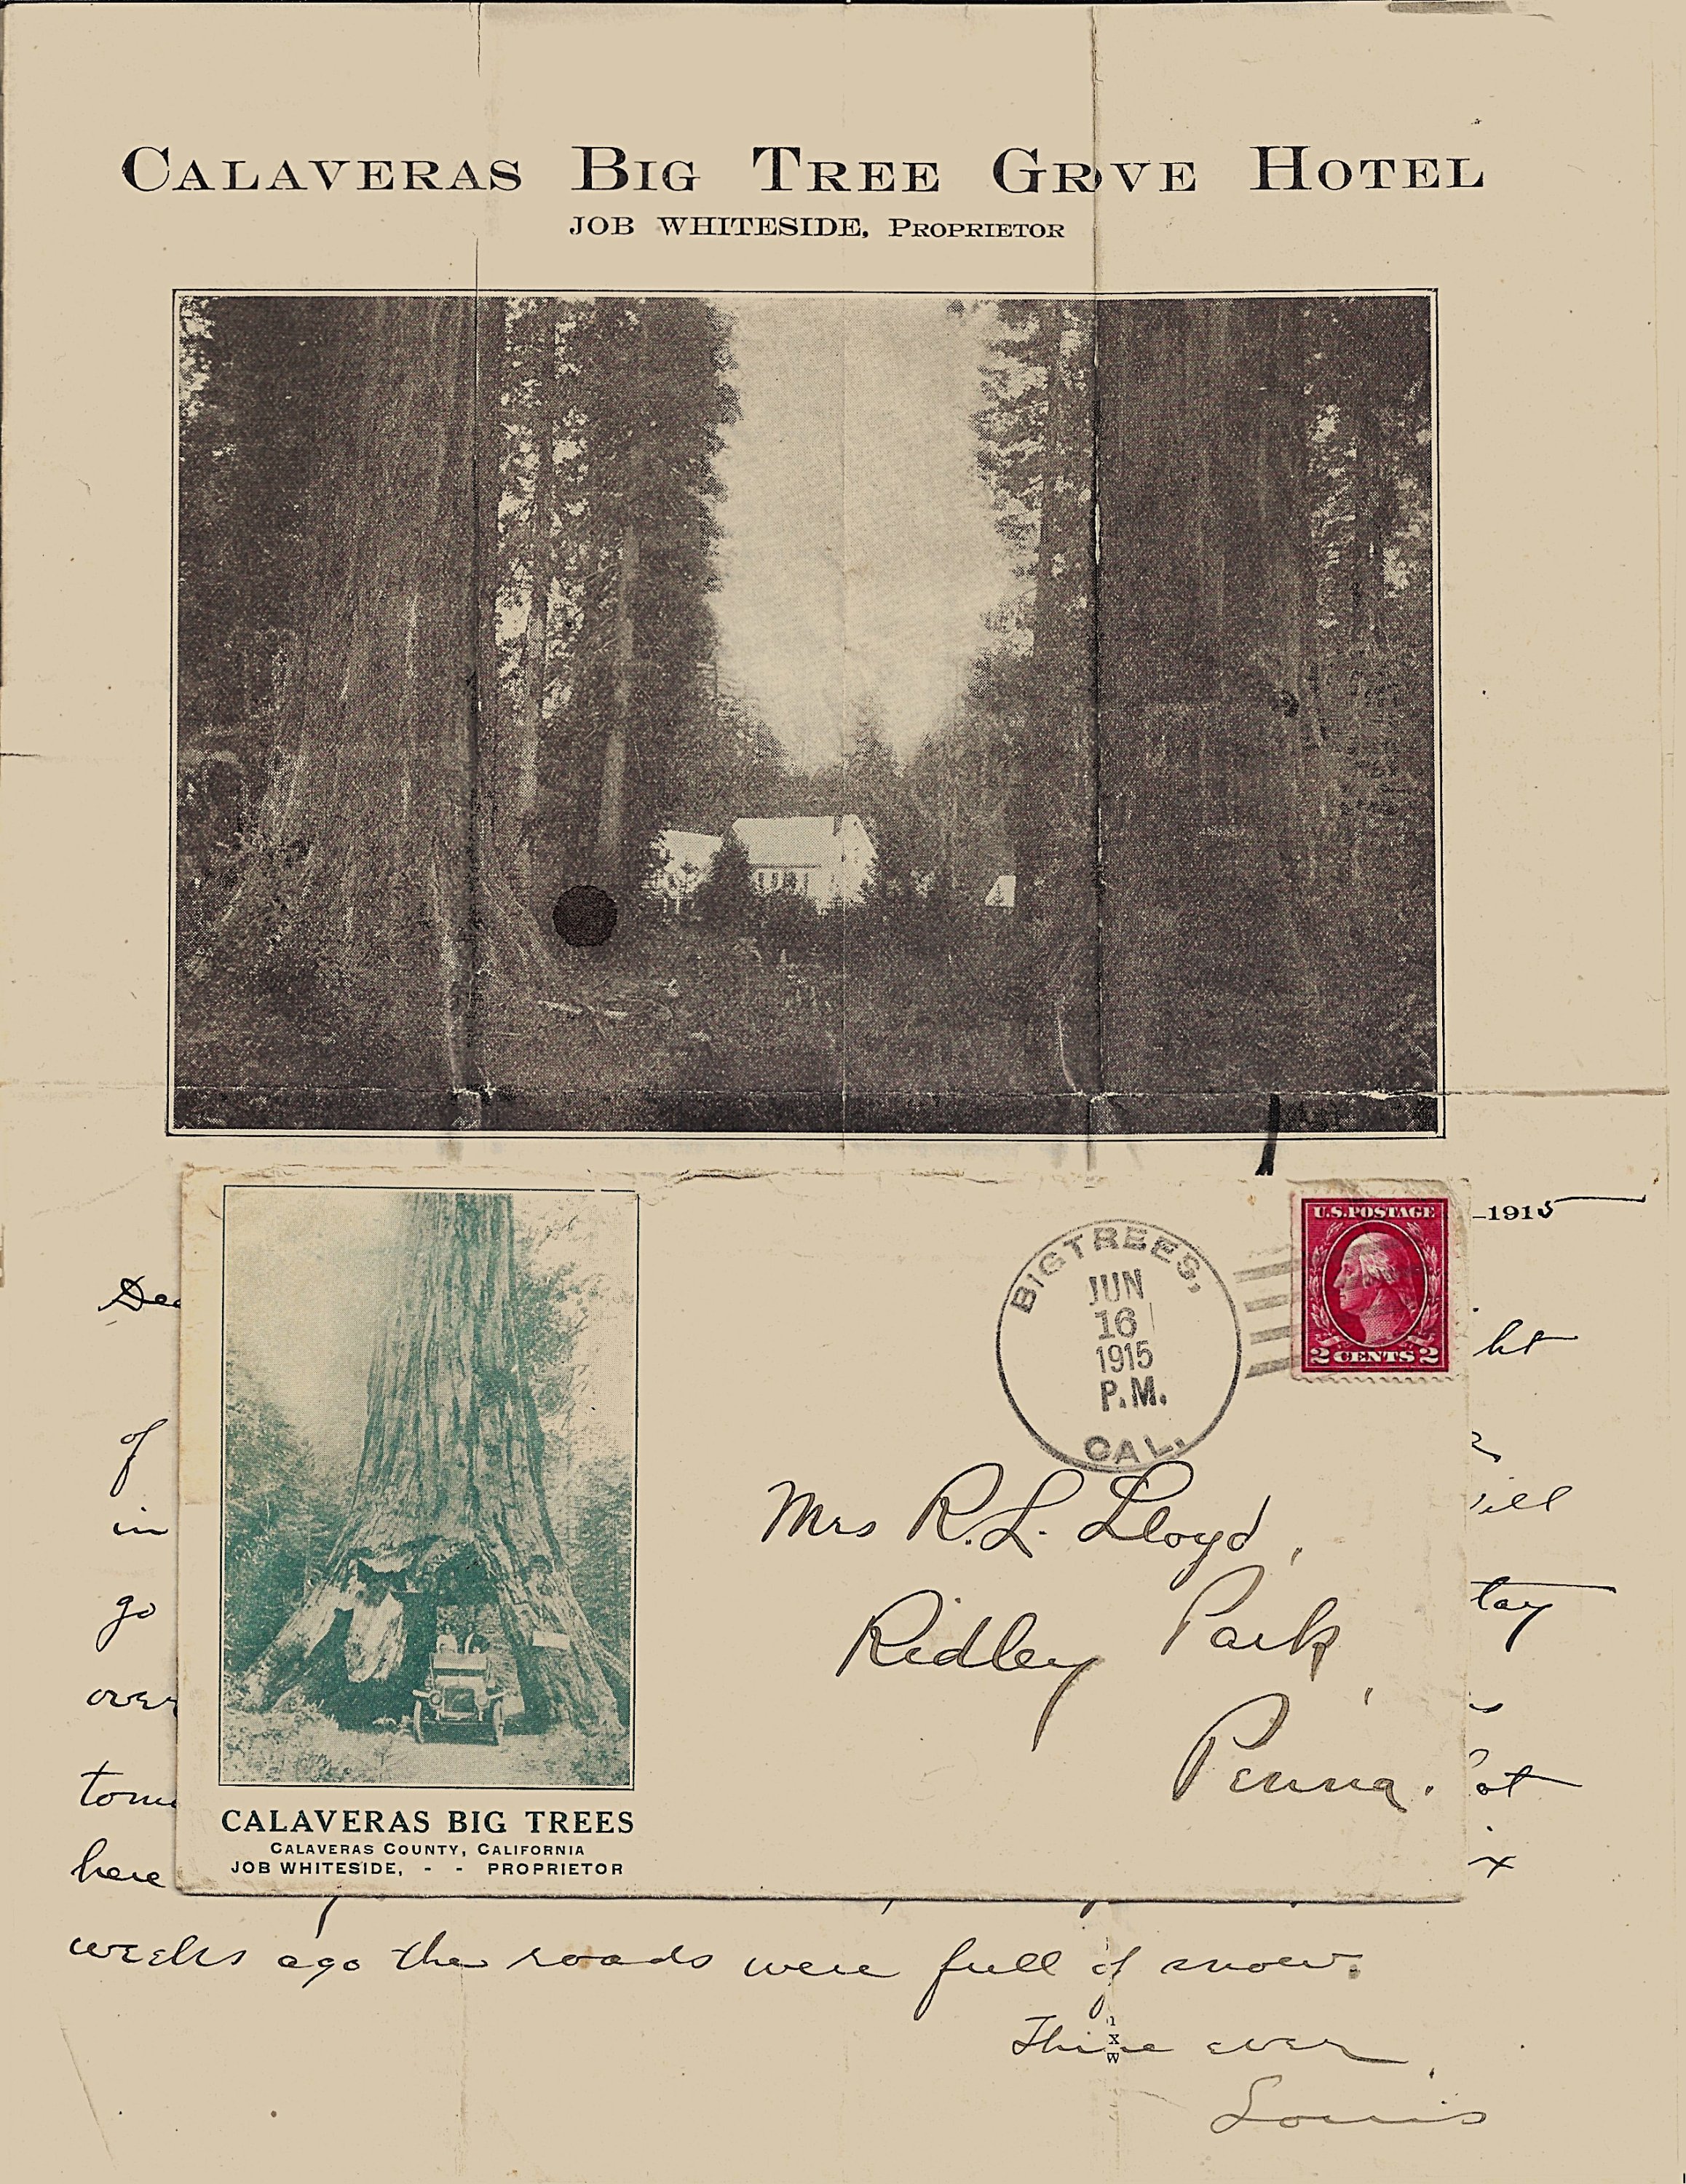 CALAVERAS BIG TREE GROVE HOTEL
JOB WHITESIDE, PROPRIETOR
-1915
Dea
ht
of
in
ill
go
tay
over
tom
ot
here
x
weeks ago the roads were full of snow.
Thine ever
Louis
1
X
W
BIGTREES,
JUN
16
1915
P.M.
CAL.
U.S. POSTAGE
2 CENTS 2
Mrs R. L. Lloyd,
Ridley Park,
Penna.
CALAVERAS BIG TREES
CALAVERAS COUNTY, CALIFORNIA
JOB WHITESIDE, - - PROPRIETOR